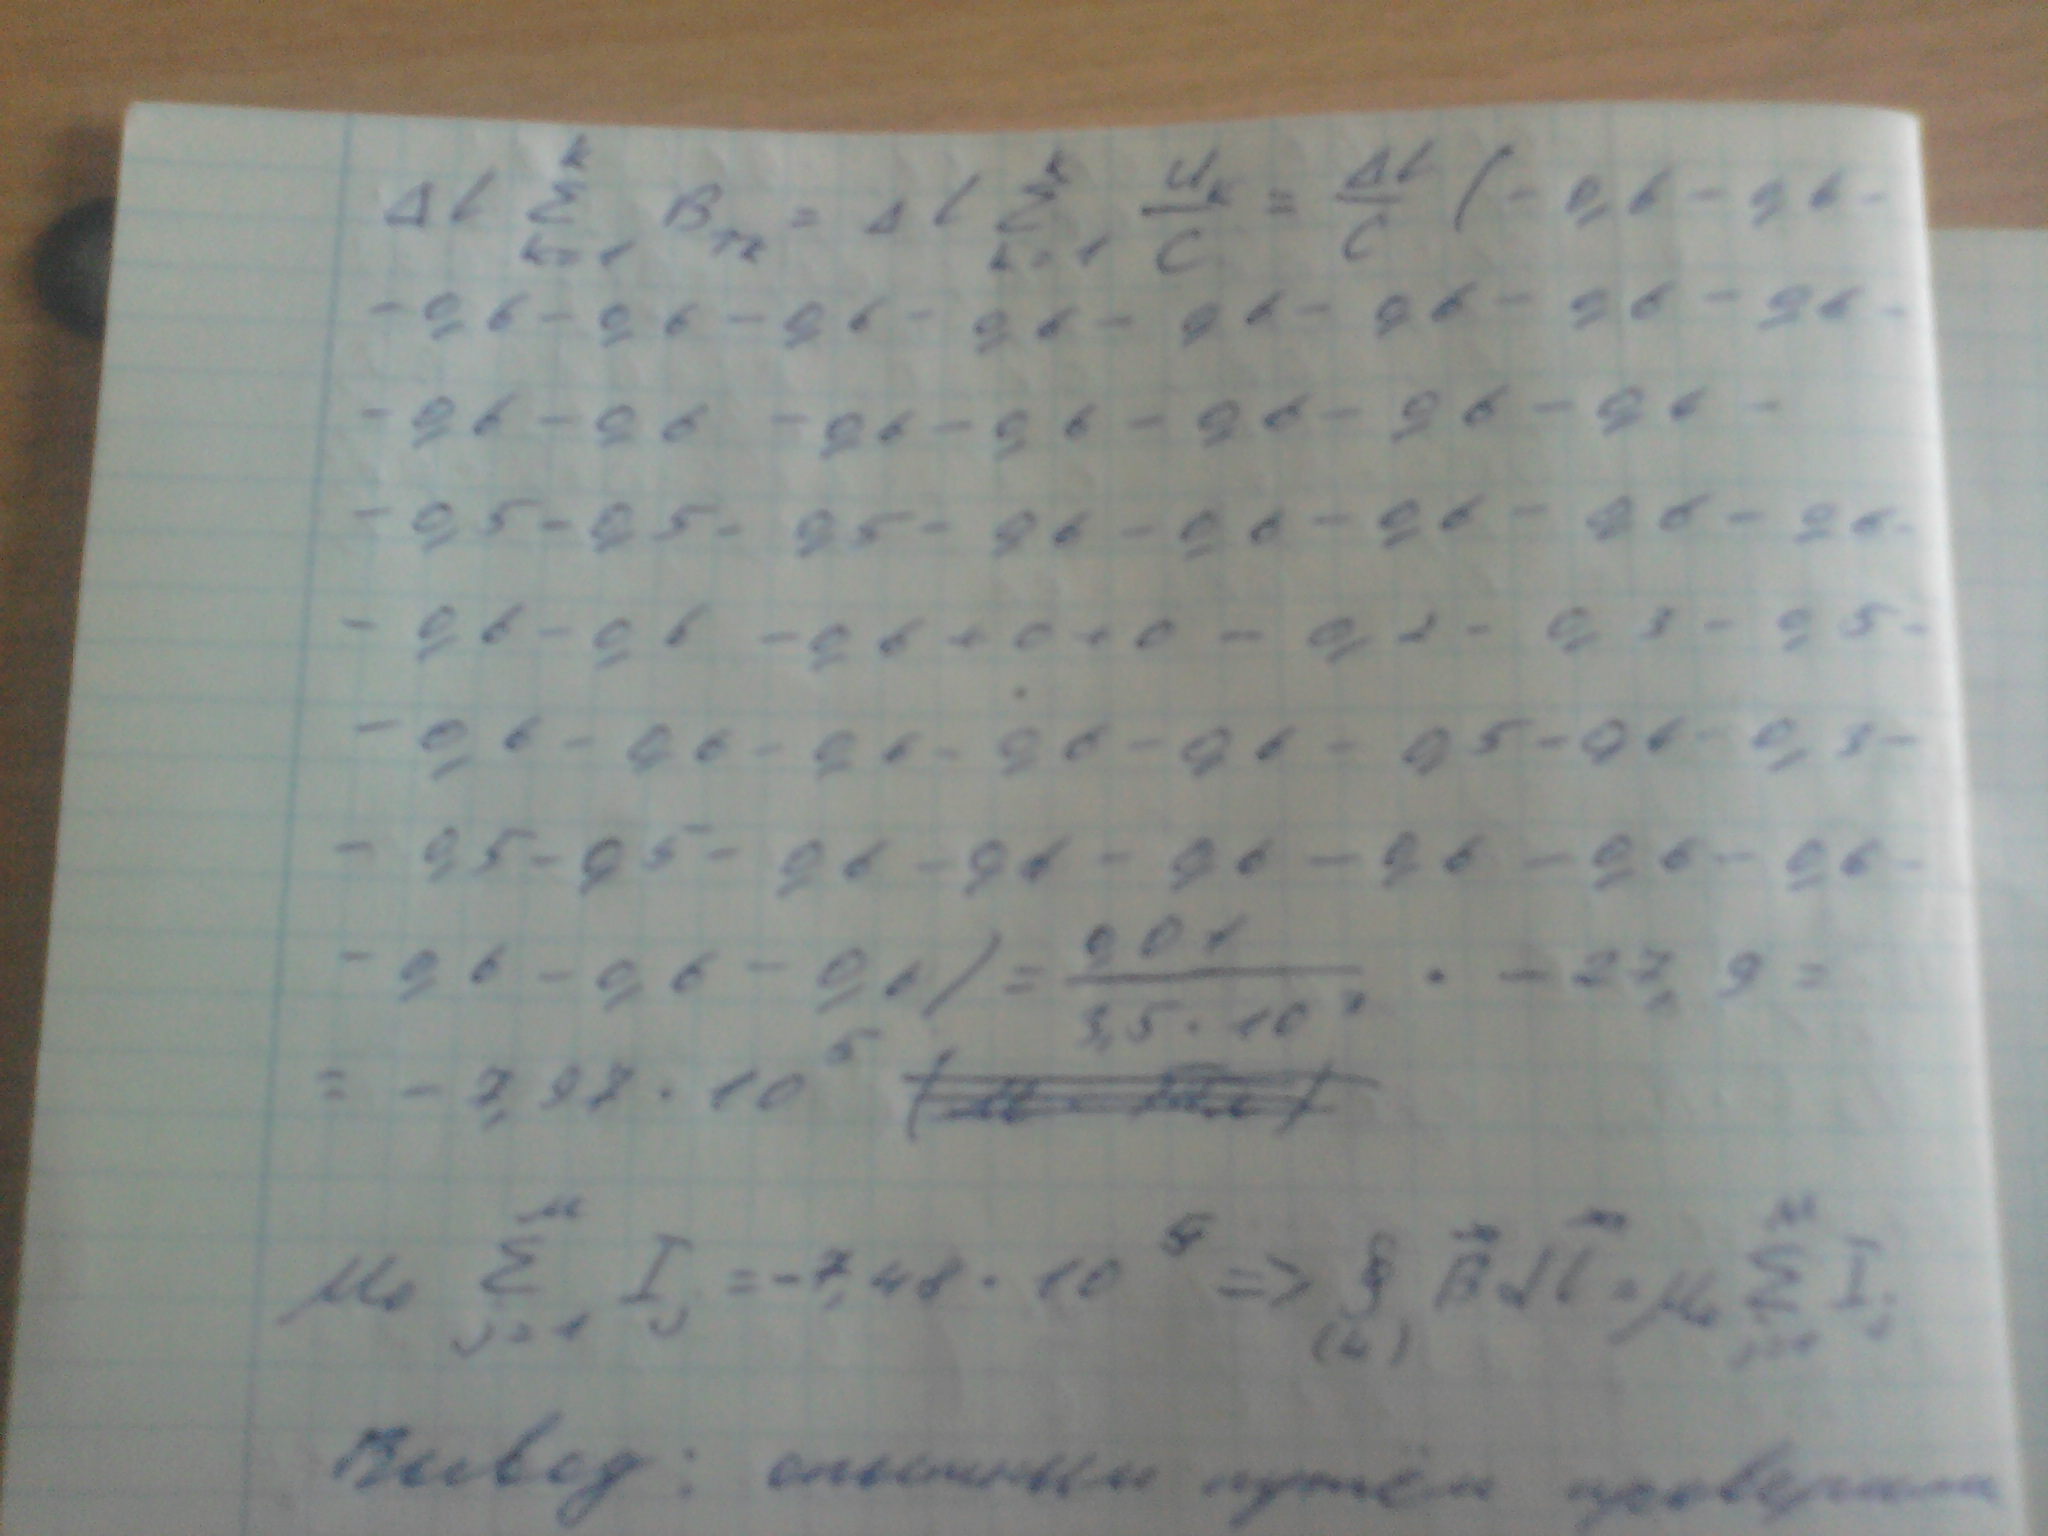 Δl Σ_{k=1}^{k} B_{τk} = Δl Σ_{k=1}^{k} U_k/C = Δl/C (- 0,6 - 0,6 -
- 0,6 - 0,6 - 0,6 - 0,6 - 0,6 - 0,6 - 0,6 - 0,6 -
- 0,6 - 0,6 - 0,6 - 0,6 - 0,6 - 0,6 - 0,6 -
- 0,5 - 0,5 - 0,5 - 0,6 - 0,6 - 0,6 - 0,6 - 0,6 -
- 0,6 - 0,6 - 0,6 + 0 + 0 - 0,2 - 0,3 - 0,5 -
- 0,6 - 0,6 - 0,6 - 0,6 - 0,6 - 0,5 - 0,6 - 0,3 -
- 0,5 - 0,5 - 0,6 - 0,6 - 0,6 - 0,6 - 0,6 - 0,6 -
- 0,6 - 0,6 - 0,6) = 0,01/3,5 · 10³ · - 27,9 =
= - 7,97 · 10⁵
μ₀ Σ_{j=1}^{M} I_j = - 7,48 · 10⁵ => ∮_{(L)} B⃗ dl⃗ = μ₀ Σ_{j=1}^{M} I_j
Вывод: опытным путём проверили